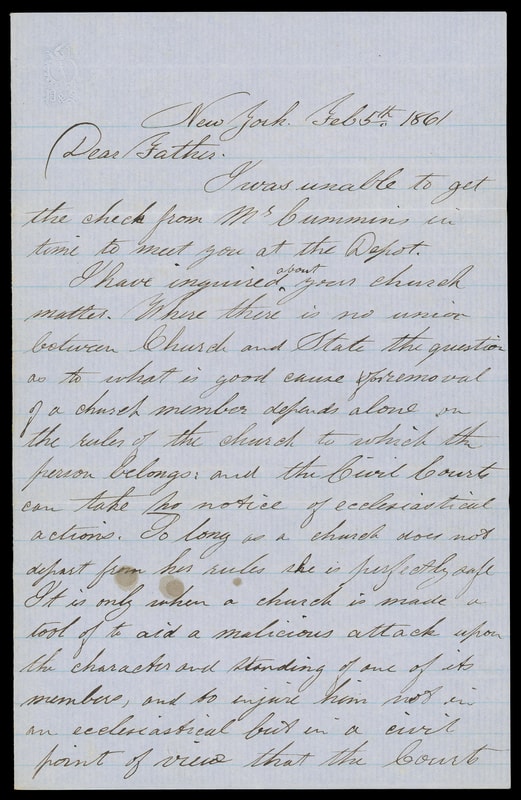 New York Feb 5th 1861
Dear Father.
I was unable to get
the check from Mr Cummins in
time to meet you at the Depot.
I have inquired about your church
matter. Where there is no union
between Church and State the question
as to what is good cause for removal
of a church member depends alone on
the rules of the church to which the
person belongs: and the Civil Courts
can take no notice of ecclesiastical
actions. So long as a church does not
depart from her rules she is perfectly safe
It is only when a church is made a
tool of to aid a malicious attack upon
the character and standing of one of its
members, and to injure him not in
an ecclesiastical but in a civil
point of view that the Courts